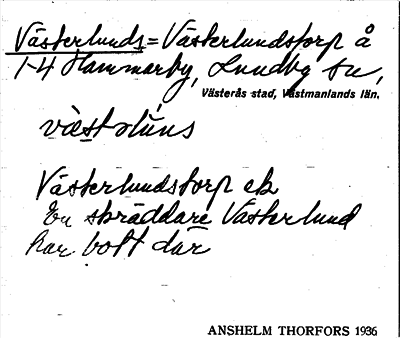 Västerlunds = Västerlundstorp å
1-4 Hammarby, Lundby sn,
Västerås stad, Västmanlands län.
væstɑluns
Västerlundstorp ek
En skräddare Västerlund
har bott där
ANSHELM THORFORS 1936